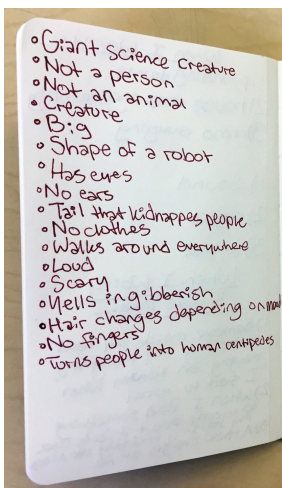 •Giant Science Creature
•Not a person
•Not an animal
•Creature
•Big
•Shape of a robot
•Has eyes
•No ears
•Tail that kidnappes people
•No clothes
•Walks around everywhere
•Loud
•Scary
•Yells in gibberish
•Hair changes depending on mood
•No fingers
•Turns people into human centipedes